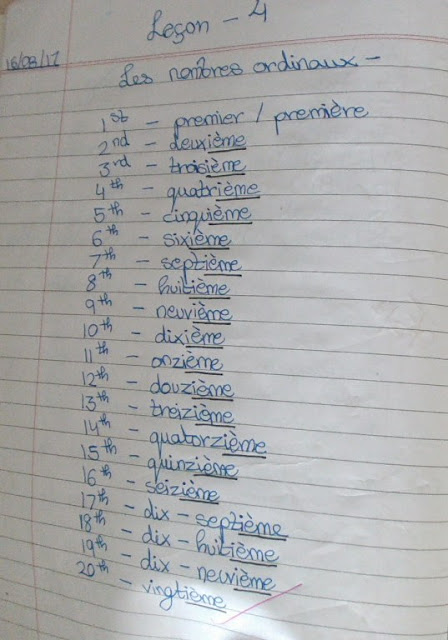 Leçon - 4
16/08/17
Les nombres ordinaux -
1st - premier / première
2nd - deuxième
3rd - troisième
4th - quatrième
5th - cinquième
6th - sixième
7th - septième
8th - huitième
9th - neuvième
10th - dixième
11th - onzième
12th - douzième
13th - treizième
14th - quatorzième
15th - quinzième
16th - seizième
17th - dix - septième
18th - dix - huitième
19th - dix - neuvième
20th - vingtième